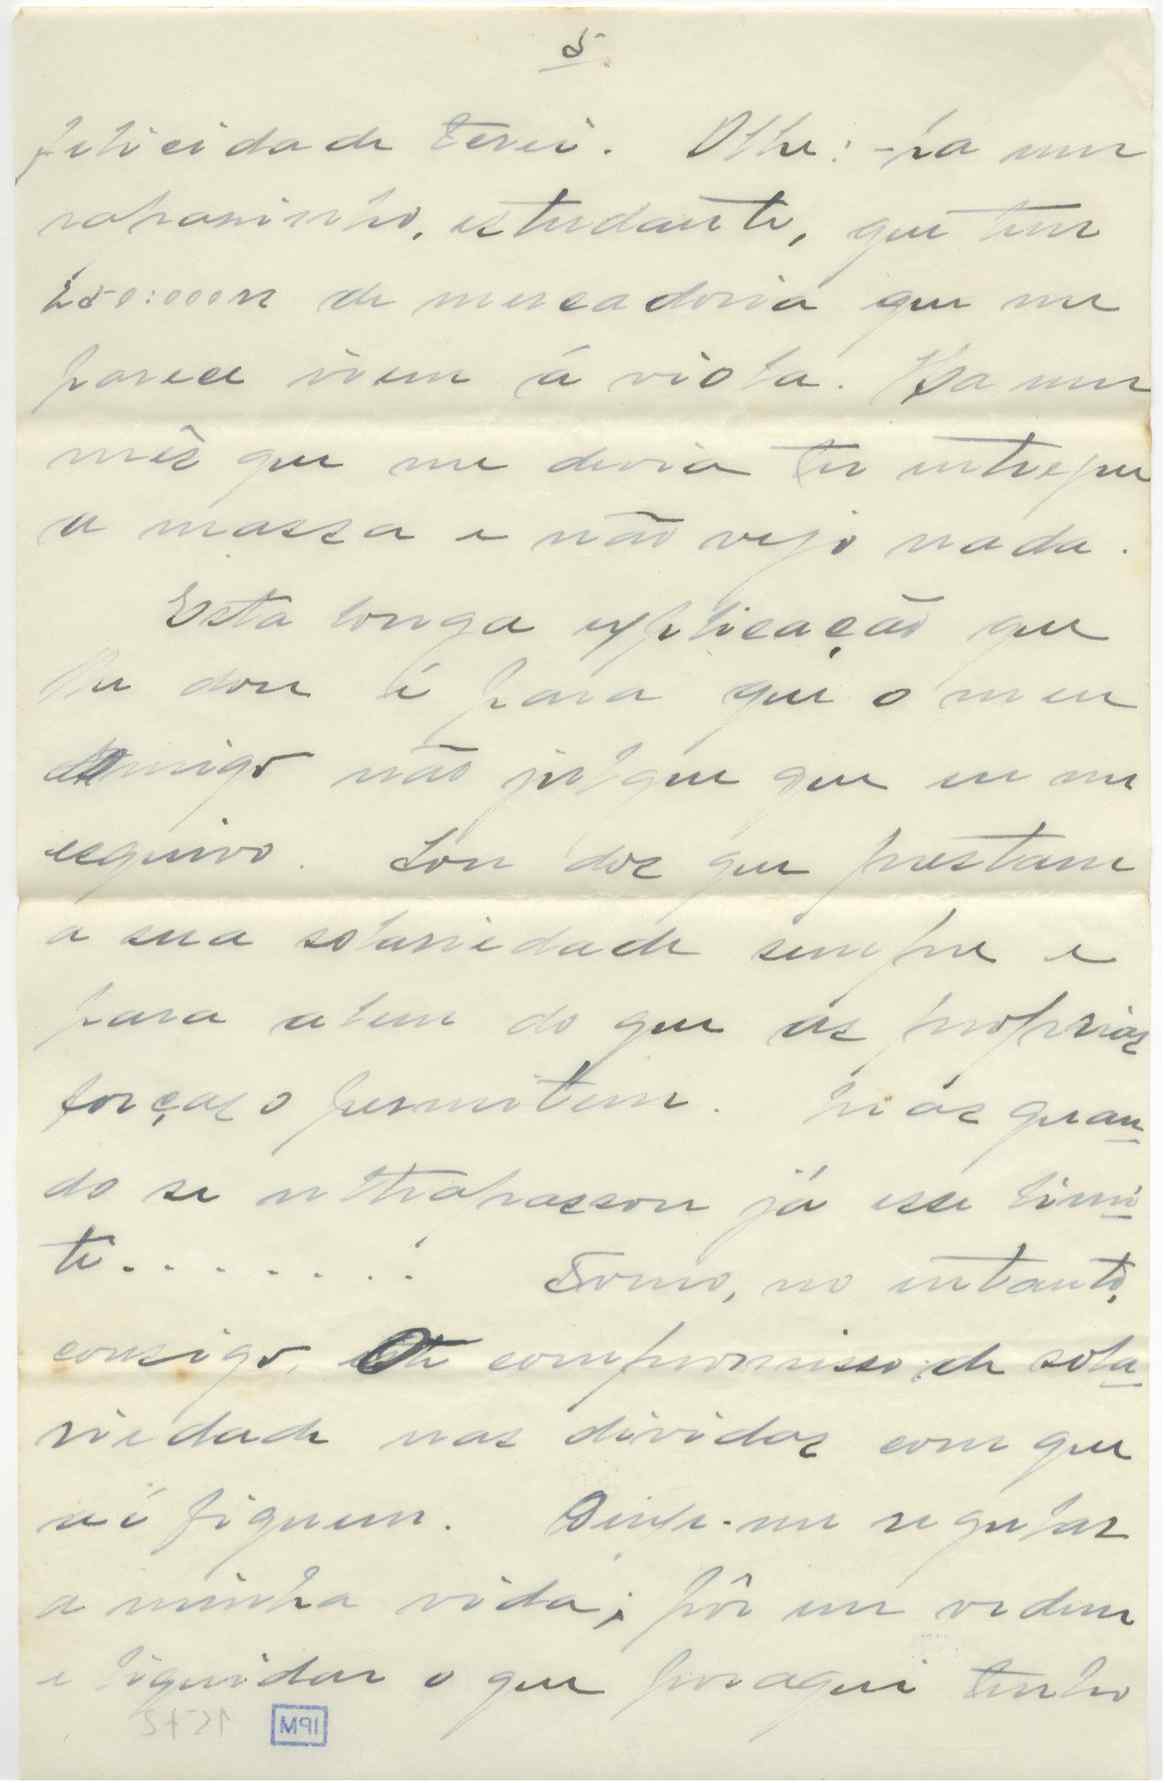 5.
felicidade terei. Olhe: -ha um
rapasinho, estudante, que tem
250:000rs de mercadoria que me
parece irem á viola. Ha um
mês que me devia ter entregue
a massa e não vejo nada.
Esta longa explicação que
lhe dou é para que o meu
amigo não julgue que eu me
esquivo. Sou dos que prestam
a sua solariedade sempre e
para alem do que as proprias
forças o permitem. Mas quan-
do se ultrapassou já esse limi-
te........! Tomo, no entanto,
consigo, este compromisso de sola-
riedade nas dividas com que
aí fiquem. Deixe-me regular
a minha vida; pôr em ordem
e liquidar o que poraqui tenho
IPM